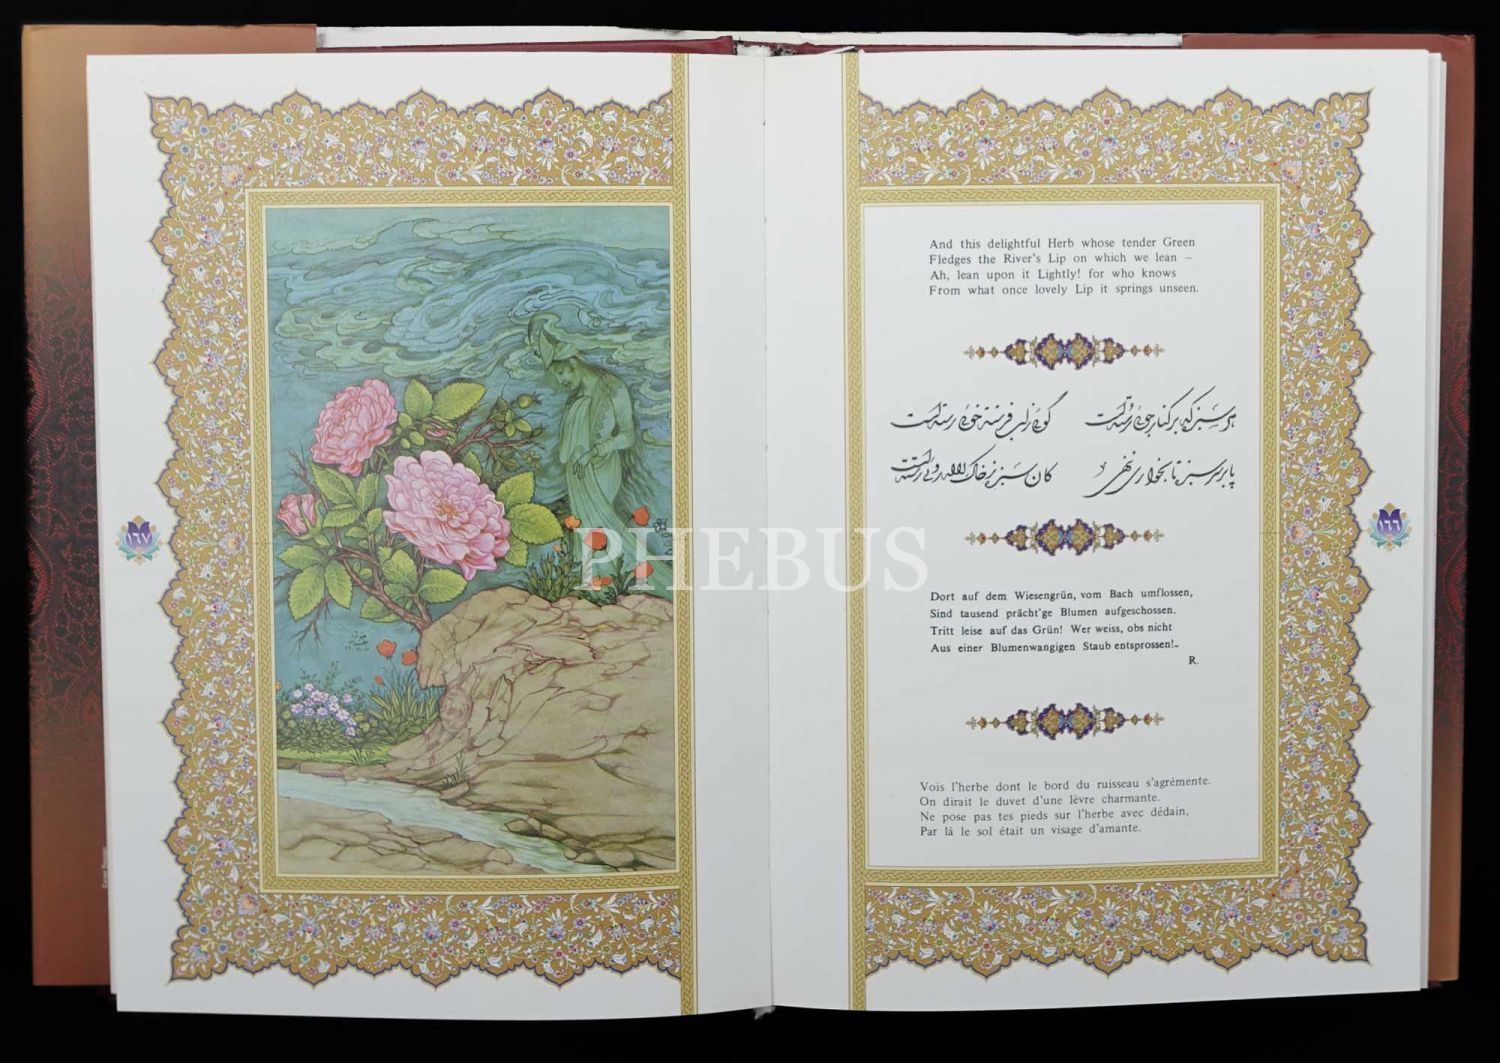 And this delightful Herb whose tender Green
Fledges the River's Lip on which we lean –
Ah, lean upon it Lightly! for who knows
From what once lovely Lip it springs unseen.
هر سبزه که بر کنار جویی رسته است
گویی ز لب فرشته خویی رسته است
پا بر سر سبزه تا بخواری ننهی
کان سبزه ز خاک لاله رویی رسته است
Dort auf dem Wiesengrün, vom Bach umflossen,
Sind tausend prächt'ge Blumen aufgeschossen.
Tritt leise auf das Grün! Wer weiss, obs nicht
Aus einer Blumenwangigen Staub entsprossen!-
R.
Vois l'herbe dont le bord du ruisseau s'agrémente.
On dirait le duvet d'une lèvre charmante.
Ne pose pas tes pieds sur l'herbe avec dédain,
Par là le sol était un visage d'amante.
۱۶۶
۱۶۷
PHEBUS